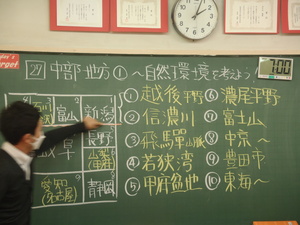 27 中部地方① ～自然環境で考えよう
7:00
target
富山
新潟
長野
岐阜
山梨
愛知
(名古屋)
静岡
① 越後平野
② 信濃川
③ 飛騨山脈
④ 若狭湾
⑤ 甲府盆地
⑥ 濃尾平野
⑦ 富士山
⑧ 中京～
⑨ 豊田市
⑩ 東海～